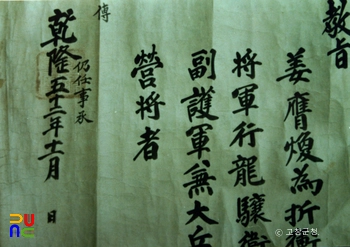 敎旨
姜膺煥為折衝
將軍行龍驤衛
副護軍兼大丘
營將者
乾隆五十二年十一月 日
仍任事承
傳
© 고창군청